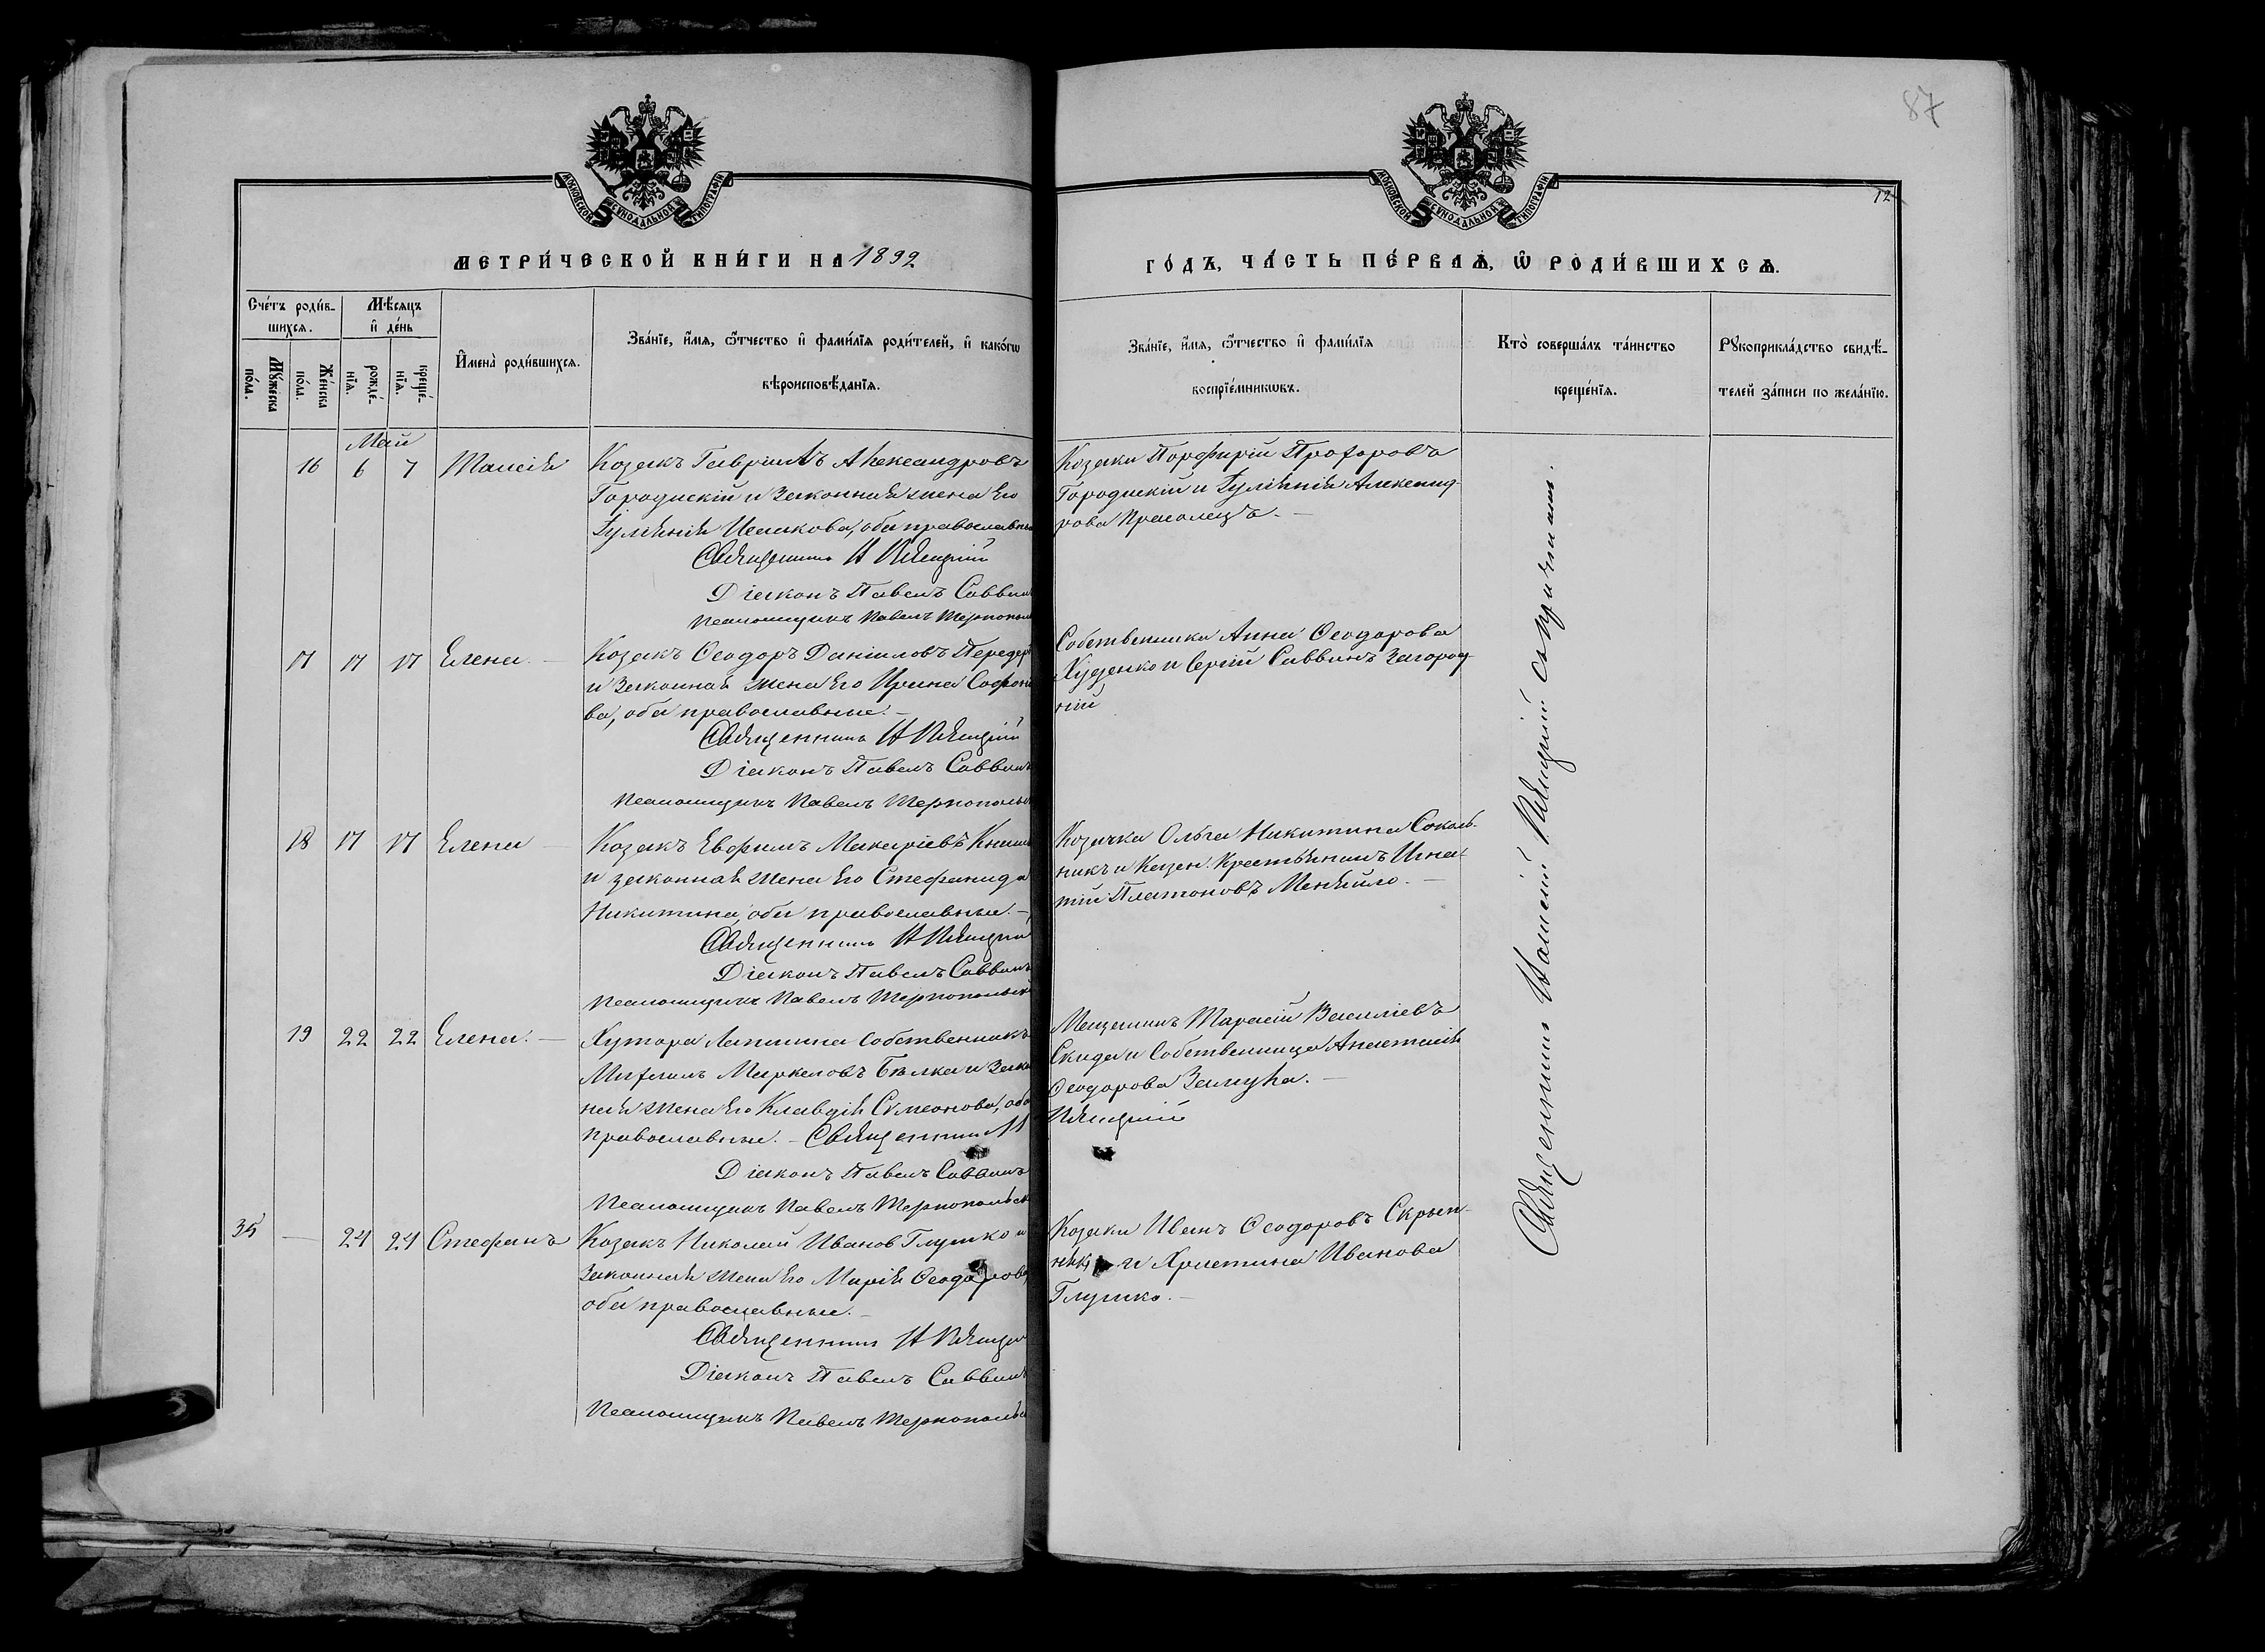 87
12
МОСКОВСКОЙ СѴНОДАЛЬНОЙ ТИПОГРАФІИ
МОСКОВСКОЙ СѴНОДАЛЬНОЙ ТИПОГРАФІИ
МЕТРИ́ЧЕСКОЙ КНИ́ГИ НА 1892
ГО́ДЪ, ЧА́СТЬ ПЕ́РВАѦ, Ѡ҆ РОДИ́ВШИХСѦ.
Сче́тъ роди́в-
шихся.
Мѣ́сяцъ
и҆ де́нь
Му́жеска по́ла.
Же́нска по́ла.
рожде́-
нїѧ.
креще́-
нїѧ.
И҆мена̀ роди́вшихся.
Зва́нїе, и҆́мя, ѻ҆́тчество и҆ фами́лїя роди́телей, и҆ како́гѡ
вѣроисповѣ́данїя.
Зва́нїе, и҆́мя, ѻ҆́тчество и҆ фами́лїя
воспрїе́мникѡвъ.
Кто̀ соверша́лъ та́инство
креще́нїя.
Рꙋкоприкла́дство свидѣ́-
телей за́писи по жела́нїю.
Май
16 6 7 Таисія Козакъ Гавріилъ Александровъ
Городискій и законная жена его
Гуліянія Исаакова, оба православн
Священникъ
Діаконъ Павелъ Саввин
Псаломщикъ Павелъ Тернополь
Козаки Порфирій Прохоровъ
Городискій и Гуліянія Александ-
рова Прасолецъ. -
17 17 17 Елена. - Козакъ Ѳеодоръ Даніиловъ Передер
и законная жена его Ирина Софоні
ва, оба православные. -
Священникъ
Діаконъ Павелъ Саввинъ
Псаломщикъ Павелъ Тернополь
Собственники Анна Ѳеодорова
Худенко и Сергій Саввинъ Загород-
ній
18 17 17 Елена - Козакъ Евфимъ Макаріевъ
и законная жена его Стефанида
Никитина, оба православные. -
Священникъ
Діаконъ Павелъ Саввинъ
Псаломщикъ Павелъ Тернопольск
Козачка Ольга Никитина Соколь-
никъ и Казен. Крестьянинъ Игна-
тій Платоновъ Меняйло. -
19 22 22 Елена. - Хутора Лапшина Собственникъ
Михаилъ Маркеловъ Бѣлка и Зако
ная жена его Клавдія Симеонова, оба
православные. - Священникъ
Діаконъ Павелъ Саввинъ
Псаломщикъ Павелъ Тернопольск
Мещанинъ Тарасій Василіевъ
Скида и Собственница Анастасія
Ѳеодорова
35 - 24 24 Стефанъ Козакъ Николай Иванов Глушко и
Законная жена его Марія Ѳеодорова,
оба православные. -
Священникъ
Діаконъ Павелъ Саввинъ
Псаломщикъ Павелъ Тернополь
Козаки Иванъ Ѳеодоровъ Скрып-
и Христина Иванова
Глушко. -
Священникъ съ причтомъ.